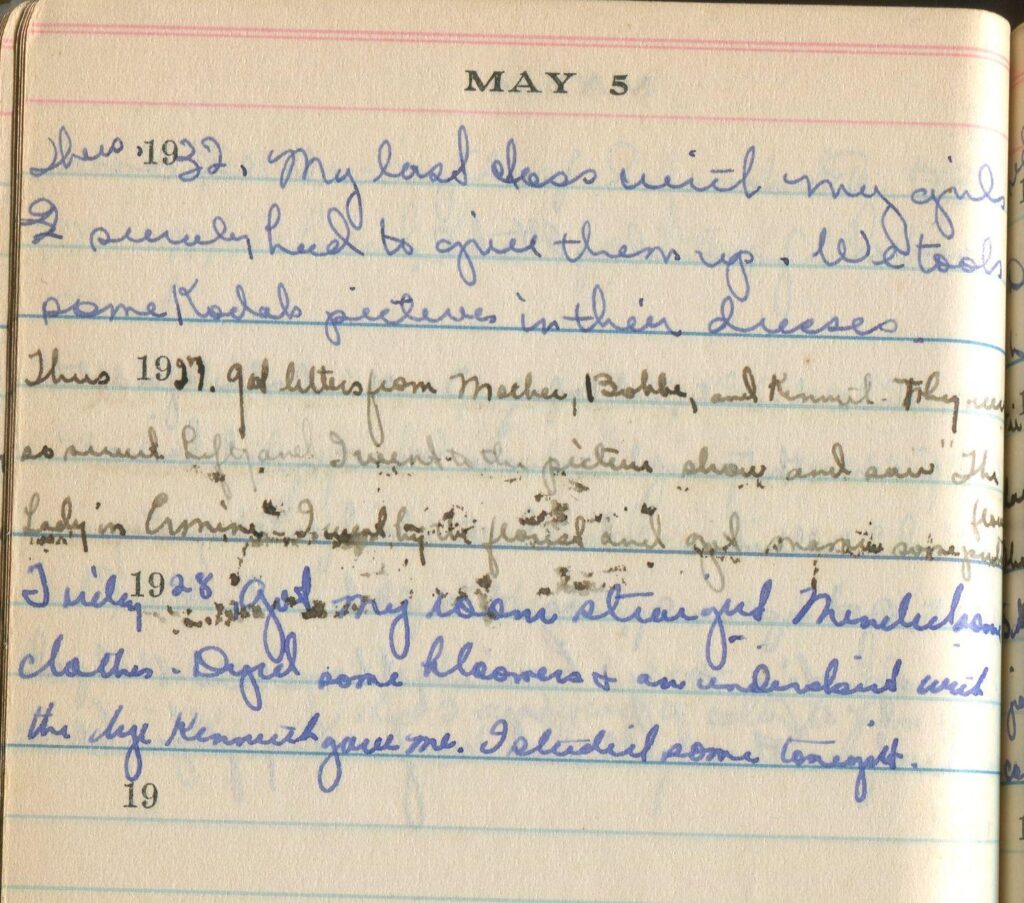 MAY 5
Thurs, 1932. My last class with my girls
I surely had to give them up. We took
some Kodak pictures in their dresses.
Thurs 1927. got letters from Mother, Bobbe, and Kenneth. They
so sweet and I went to the picture show and saw "The
Lady in Ermine. I went by the florist and got mamma some
Friday 1928 Got my room straight Mended some
clothes. Dyed some bloomers & an underskirt with
the dye Kenneth gave me. I studied some tonight.
19